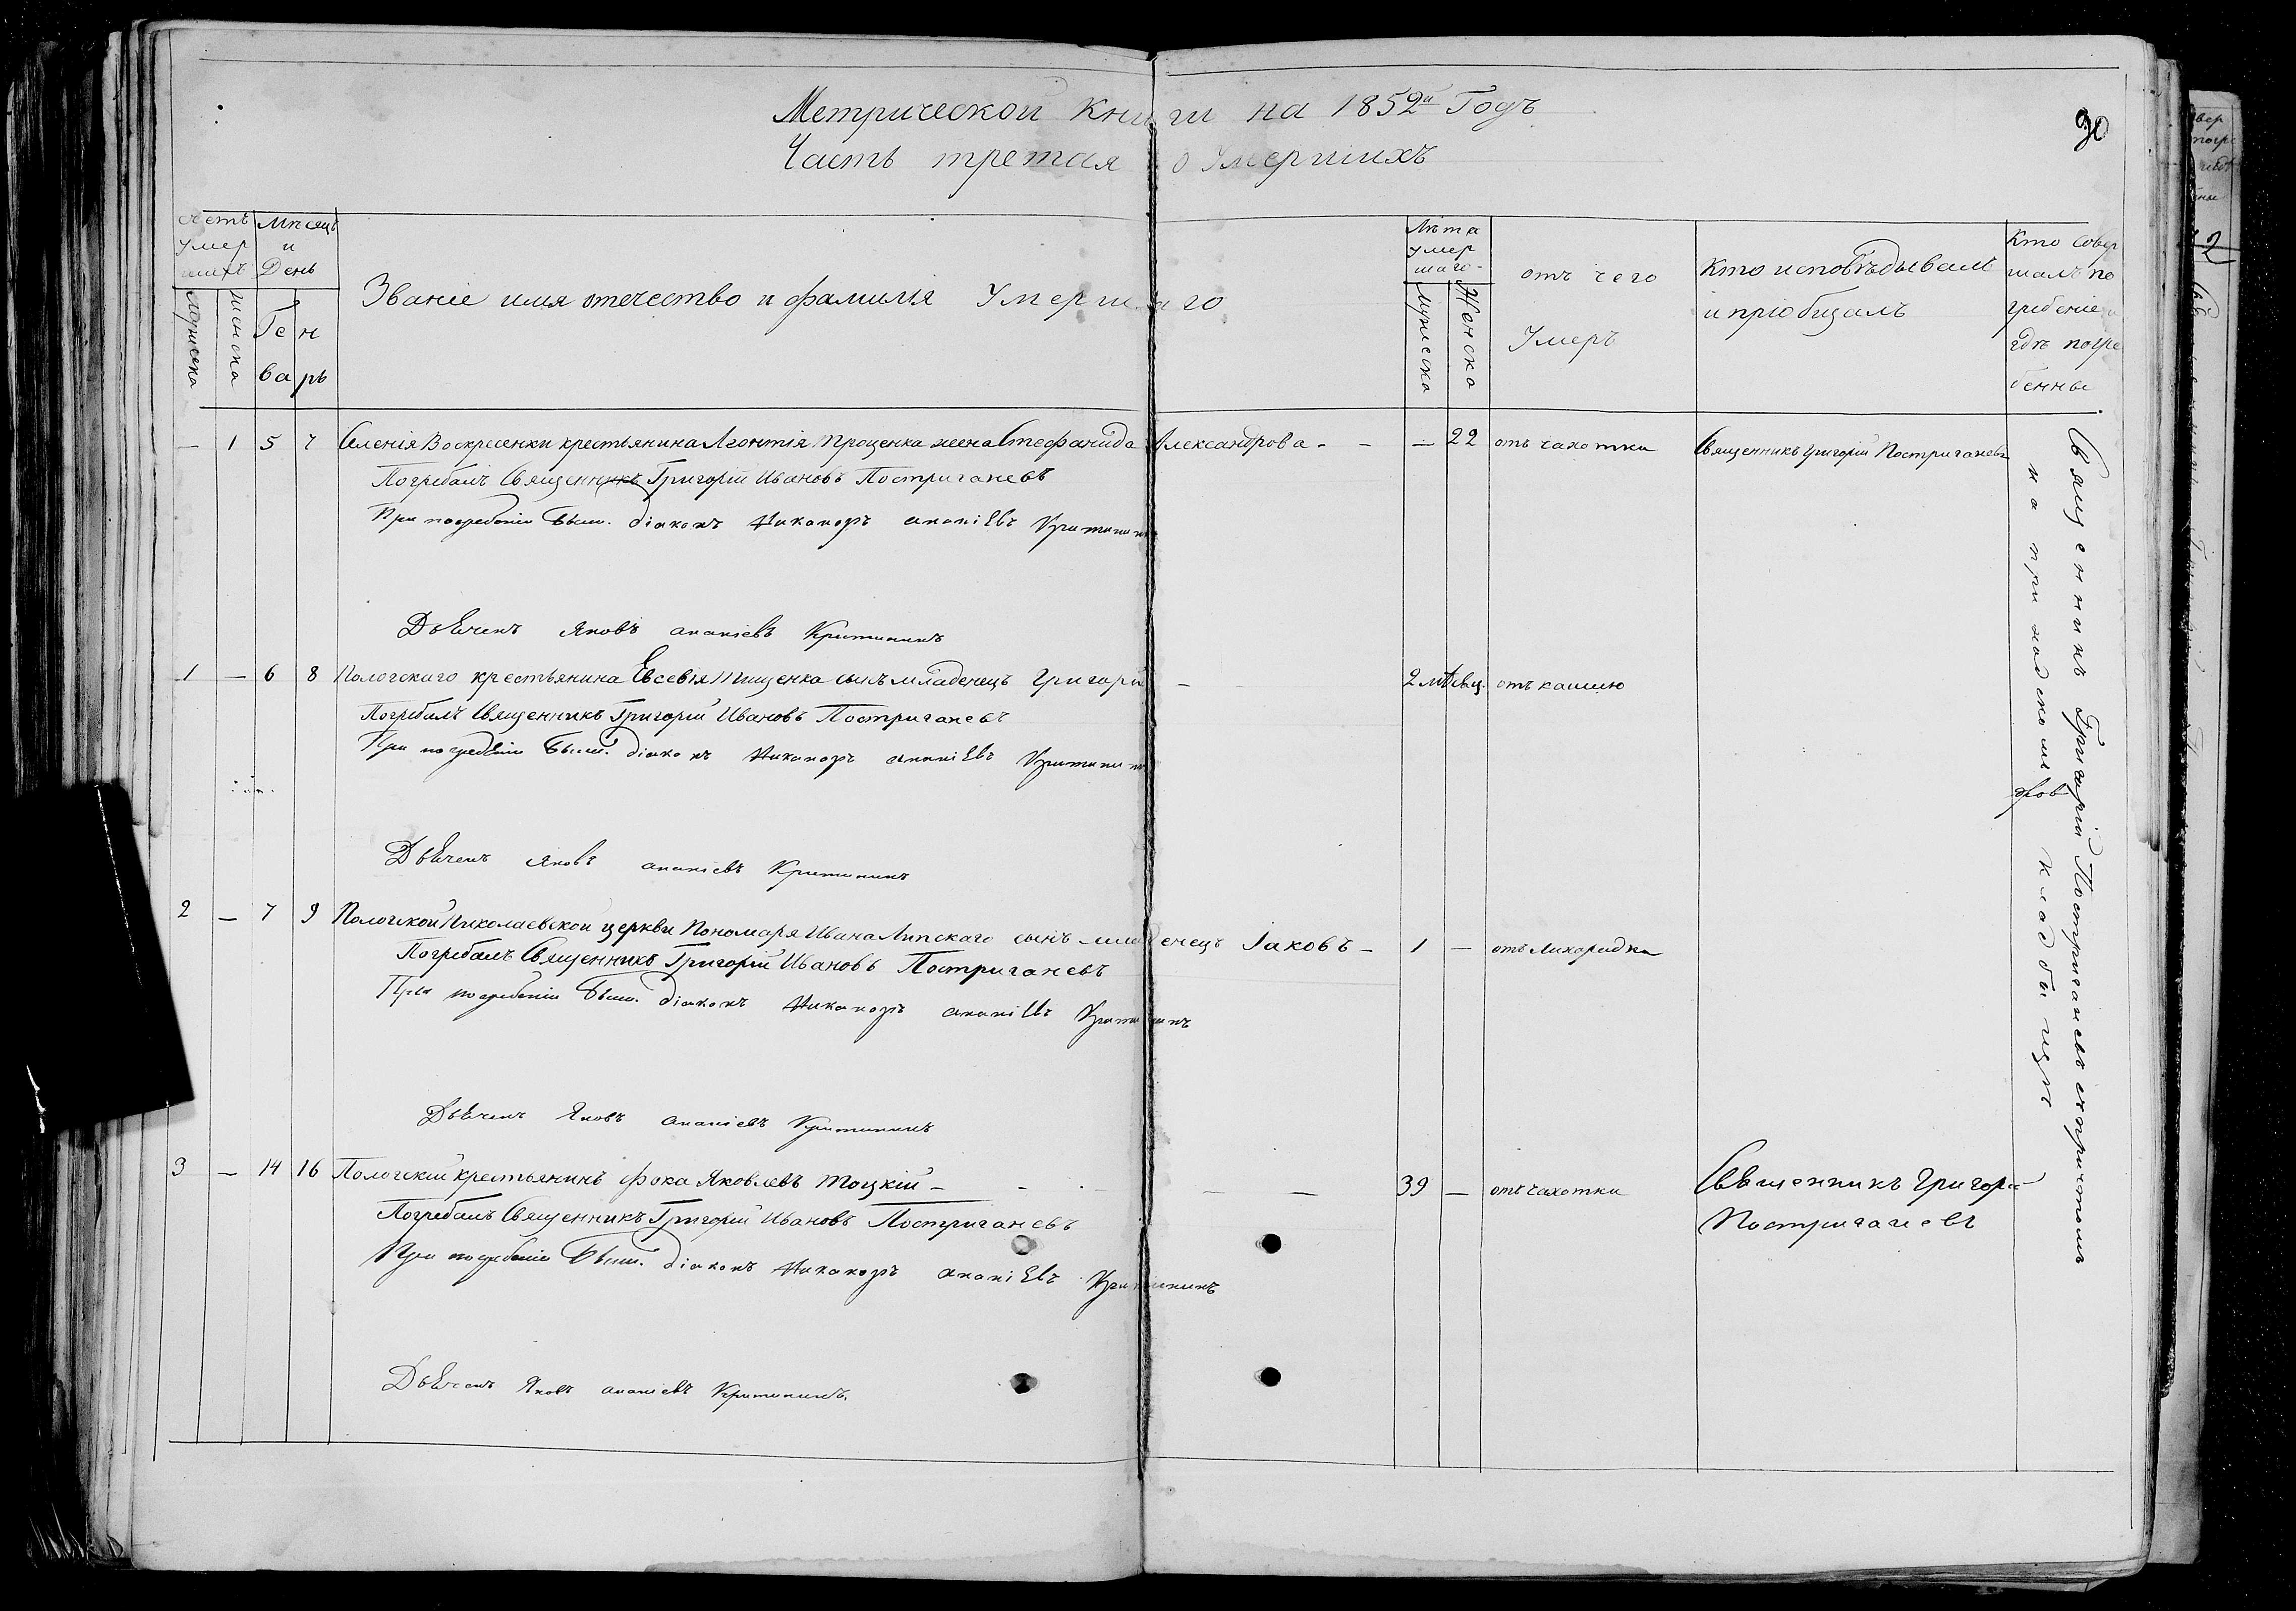 Метрической книги на 1852й Годъ
Часть третая о Умершихъ
90
Счетъ умер шихъ
Мѣсецъ и День
Званіе имя отечество и фамилія Умершаго
Лѣта умер шаго
отъ чего Умеръ
Кто исповѣдывалъ и пріобщалъ
Кто совер шалъ по гребеніе и гдѣ погре бенны
Мужеска
женска
Ген варь
Мужеска
Женска
— 1 5 7 Селенія Воскресенки крестьянина Леонтія Проценка жена Стефанида Александрова — — — 22 отъ чахотки Священникъ Григорій Постриганевъ
Погребалъ Священникъ Григорій Ивановъ Постриганевъ
При погребеніи были: діаконъ Никаноръ ананіевъ
Дьячекъ Яковъ ананіевъ
1 — 6 8 Пологскаго крестьянина Евсевія Тищенка сынъ младенецъ Григорій — 2 мѣсяц. отъ кашлю
Погребалъ Священникъ Григорій Ивановъ Постриганевъ
При погребеніи были: діаконъ Никаноръ ананіевъ
Дьячекъ Яковъ ананіевъ
2 — 7 9 Пологской Николаевской церкви Пономаря Ивана Липскаго сынъ младенецъ Іаковъ — 1 — отъ Лихорадки
Погребалъ Священникъ Григорій Ивановъ Постриганевъ
При погребеніи были: діаконъ Никаноръ ананіевъ
Дьячекъ Яковъ ананіевъ
3 — 14 16 Пологскій крестьянинъ Фока Яковлевъ Тоцкій — — — 39 — отъ чахотки Священникъ Григорій
Постриганевъ
Погребалъ Священникъ Григорій Ивановъ Постриганевъ
При погребеніи были: діаконъ Никаноръ ананіевъ
Дьячекъ Яковъ ананіевъ
Священникъ Григорій Постриганевъ съ причтомъ
на приходскомъ кладбищѣ